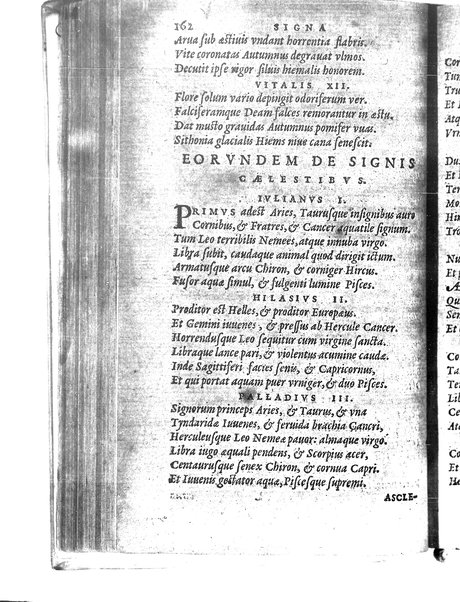 162 SIGNA
Arua sub æstiuis vndant horrentia flabris.
Vite coronatas Autumnus degrauat vlmos.
Decutit ipse rigor siluis hiemalis honorem.
VITALIS XII.
Flore solum vario depingit odoriferum ver.
Falciferamque Deam falces remorantur in æstu.
Dat musto grauidas Autumnus pomifer vuas.
Sithonia glacialis Hiems niue cana senescit.
EORVNDEM DE SIGNIS
CÆLESTIBVS.
IVLIANVS I.
PRIMVS adest Aries, Taurusque insignibus auro
Cornibus, & Fratres, & Cancer aquatile signum.
Tum Leo terribilis Nemees, atque innuba virgo.
Libra subit, caudaque animal quod dirigit ictum.
Armatusque arcu Chiron, & corniger Hircus.
Fusor aquæ simul, & fulgenti lumine Pisces.
HILASIVS II.
Proditor est Helles, & proditor Europæus.
Et Gemini iuuenes, & pressus ab Hercule Cancer.
Horrendusque Leo sequitur cum virgine sancta.
Libraque lance pari, & violentus acumine caudæ.
Inde Sagittiferi facies senis, & Capricornus,
Et qui portat aquam puer vrniger, & duo Pisces.
PALLADIVS III.
Signorum princeps Aries, & Taurus, & vna
Tyndaridæ Iuuenes, & feruida brachia Cancri,
Herculeusque Leo Nemeæ pauor: almaque virgo.
Libra iugo æquali pendens, & Scorpius acer,
Centaurusque senex Chiron, & cornua Capri.
Et Iuuenis gestator aquæ, Piscesque supremi.
ASCLE-